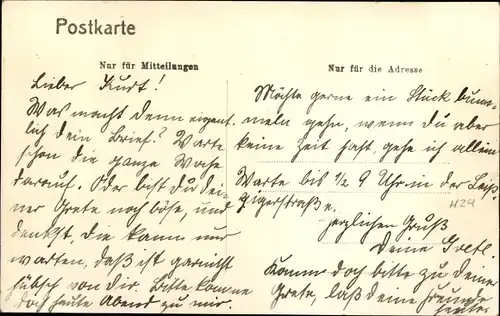 Postkarte
Nur für Mitteilungen
Lieber Kurt!
Was macht denn eigent-
lich dein Brief? Warte
schon die ganze Woche
darauf. Oder bist du dei-
ner Grete noch böse, und
denkst, die kann nur
warten, daß ist garnicht
hübsch von dir. Bitte komme
doch heute Abend zu mir.
Nur für die Adresse
Möchte gerne ein Stück bum-
meln gehn, wenn du aber
keine Zeit hast, gehe ich allein.
Warte bis 1/2 9 Uhr in der
H24
herzlichen Gruß
Deine Gretl.
Komm doch bitte zu deiner
Grete, laß deine Freunde